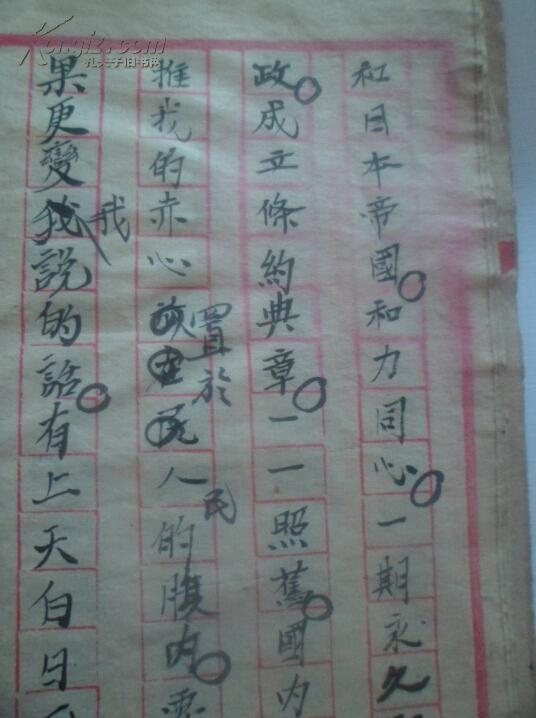 和日本帝國。和力同心。一期永久
政。成立條約典章。一一照舊。國内
推我的赤心置於人民的腹内。
果更變我説的話。有上天白日
我
Kongfz.com
孔夫子旧书网